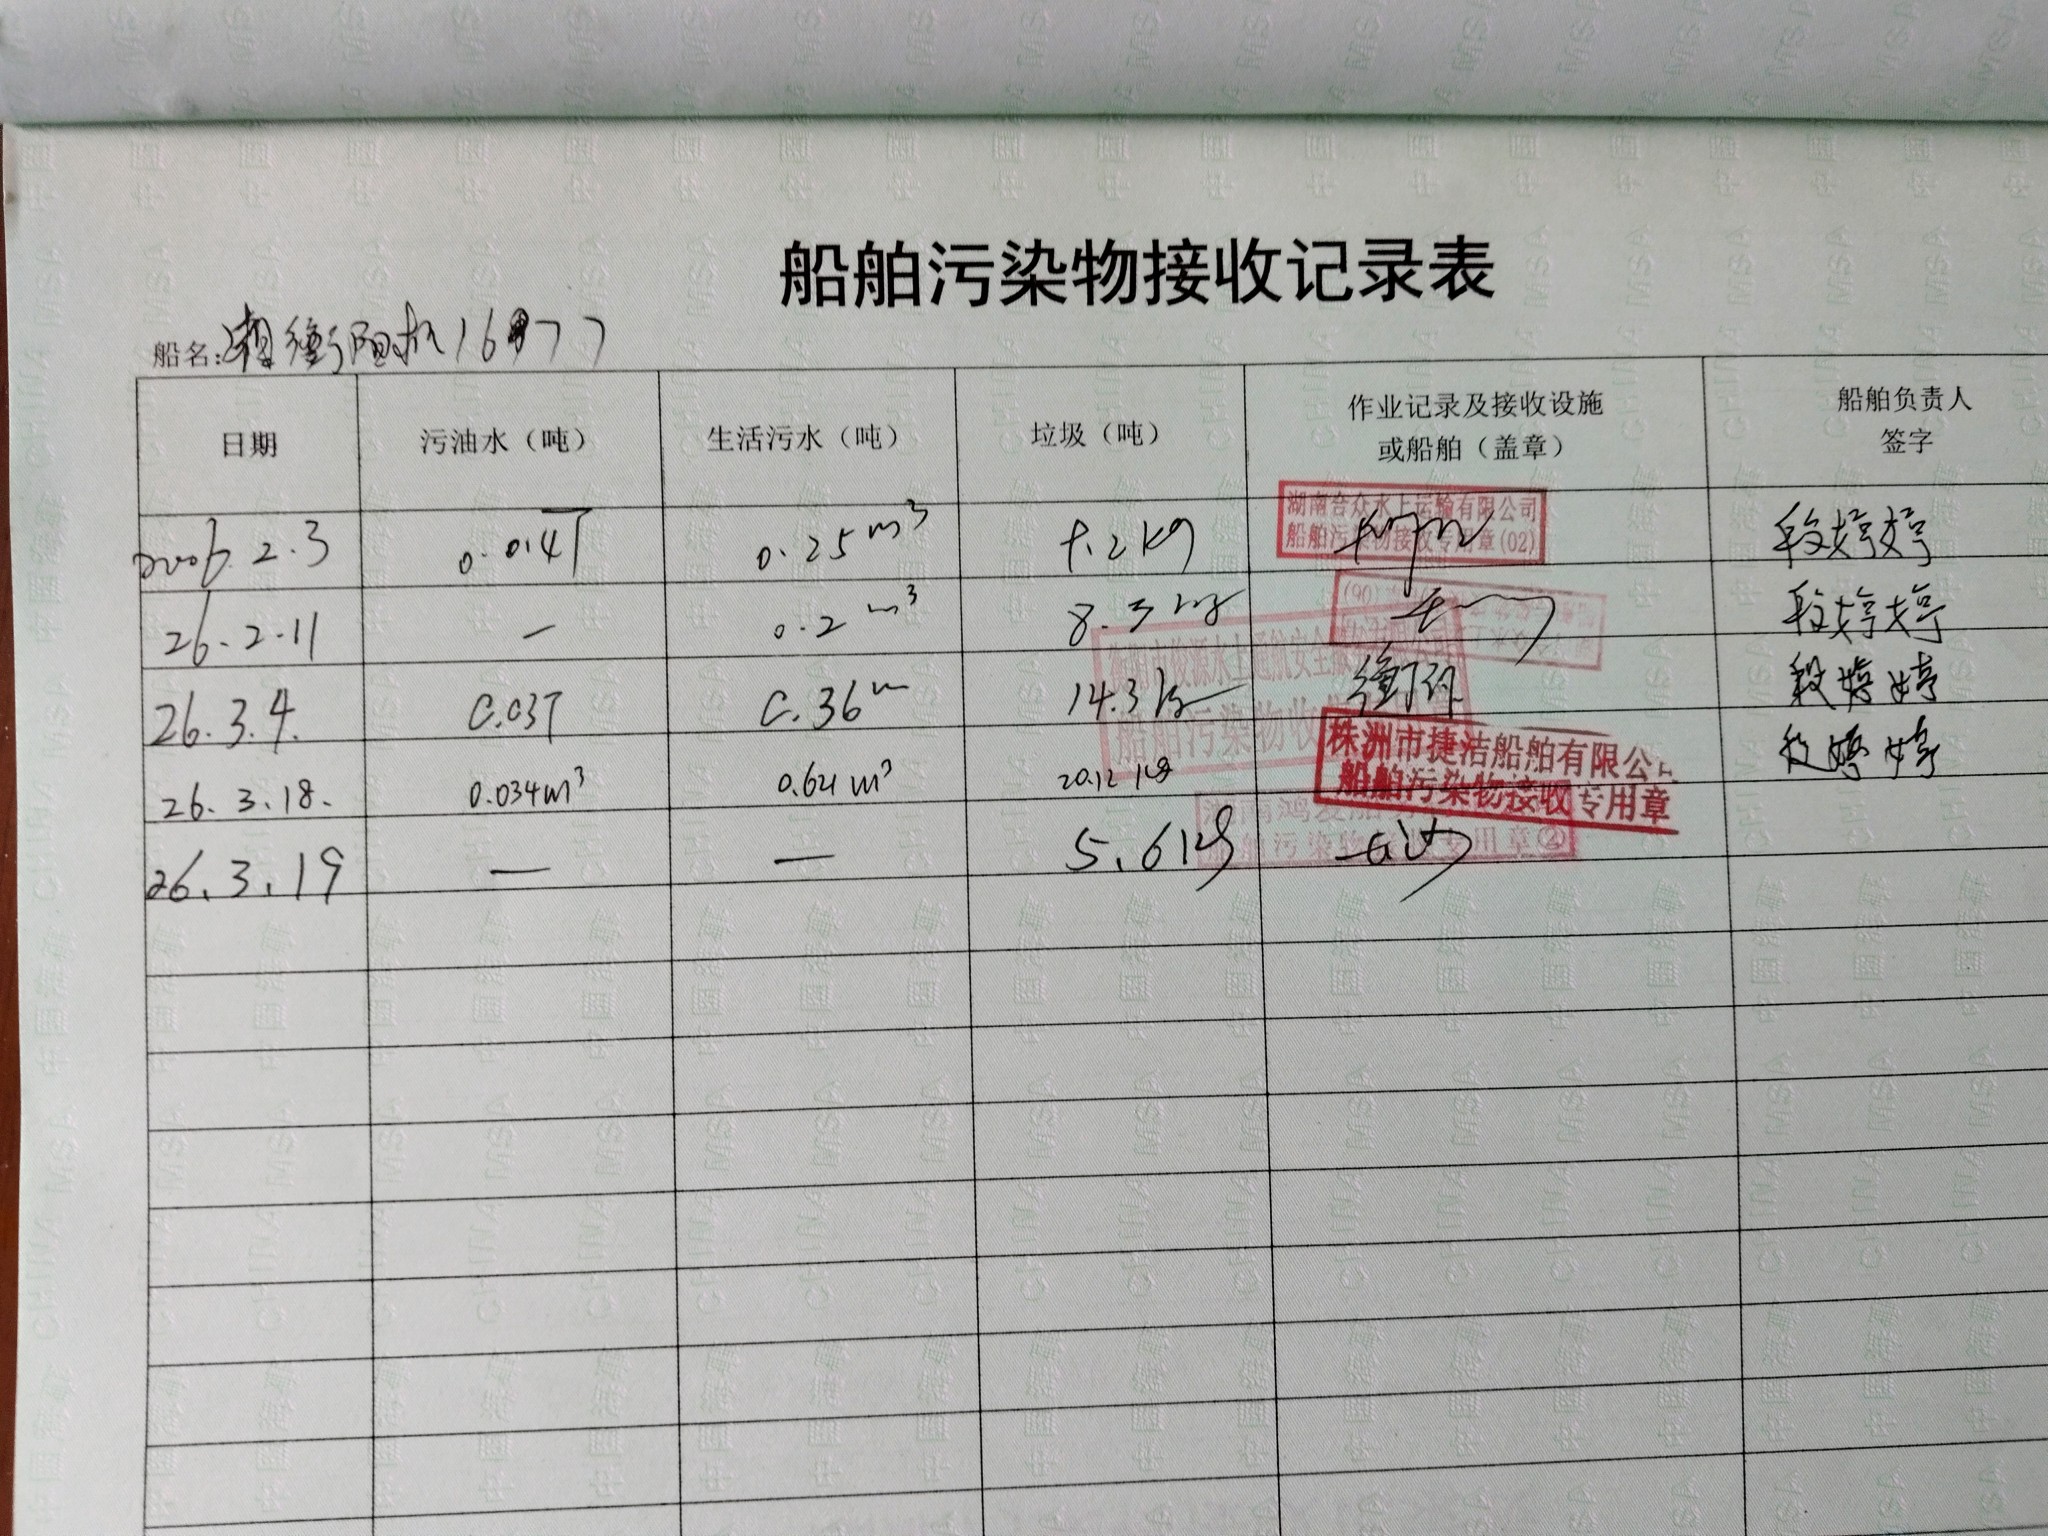 船舶污染物接收记录表
船名:湘衡阳机16 77
日期 污油水（吨） 生活污水（吨） 垃圾（吨） 作业记录及接收设施或船舶（盖章） 船舶负责人签字
2.3 0.04T 0.25m³ .2kg 段婷婷
湖南合众水上运输有限公司
船舶污染物接收专用章(02)
26.2.11 — 0.2m³ 8.3kg 段婷婷
26.3.4. 0.03T 0.36m 14.3kg 衡阳 段婷婷
船舶污染物收
26.3.18. 0.034m³ 0.621m³ 20.12kg 段婷婷
株洲市捷洁船舶有限公司
船舶污染物接收专用章
26.3.19 — — 5.6kg
湖南鸿
船舶污染物 专用章②